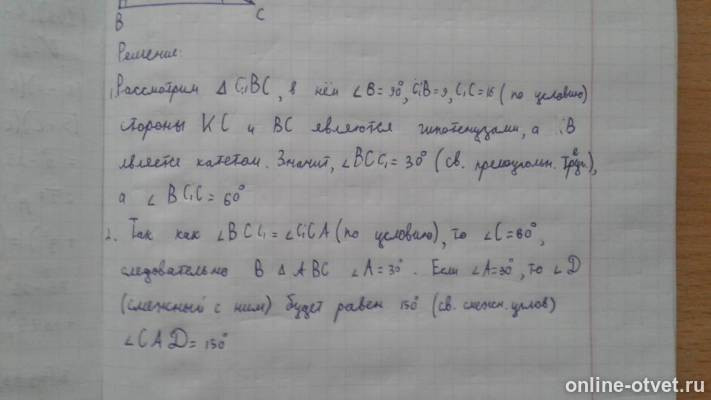 B
C
Решение:
1. Рассмотрим Δ C₁BC, в нём ∠B = 90°, C₁B = 9, C₁C = 18 (по условию)
стороны KC и BC являются гипотенузами, а B
является катетом. Значит, ∠BCC₁ = 30° (св. прямоугольн. треуг.),
а ∠BC₁C = 60°
2. Так как ∠BCC₁ = ∠C₁CA (по условию), то ∠C = 60°,
следовательно в Δ ABC ∠A = 30°. Если ∠A = 30°, то ∠D
(смежный с ним) будет равен 150° (св. смежн. углов)
∠CAD = 150°
online-otvet.ru